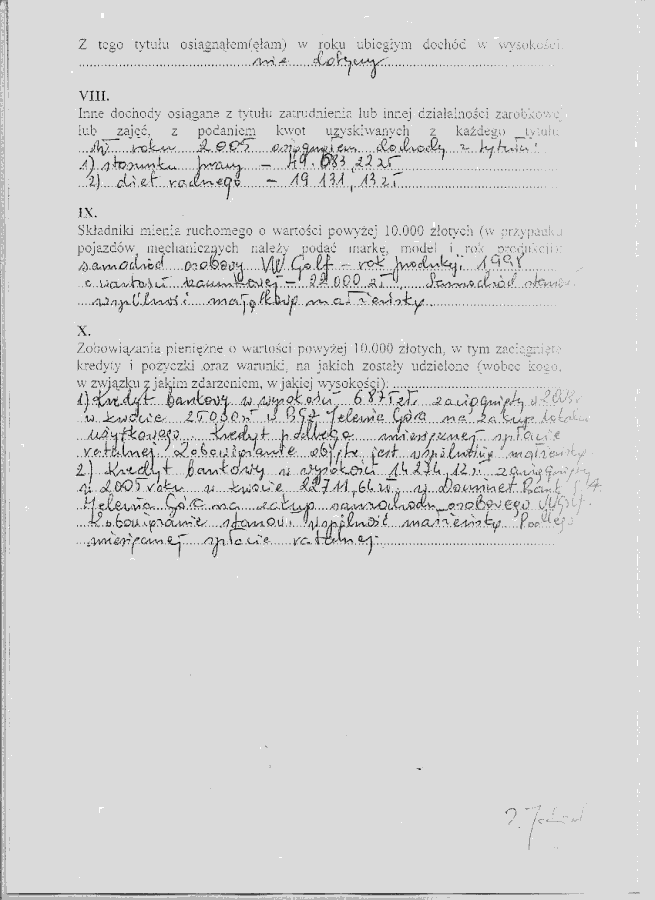 Z tego tytułu osiągnąłem(ęłam) w roku ubiegłym dochód w wysokości:
nie dotyczy
VIII.
Inne dochody osiągane z tytułu zatrudnienia lub innej działalności zarobkowej
lub zajęć, z podaniem kwot uzyskiwanych z każdego tytułu:
W roku 2005 osiągnąłem dochody z tytułu:
1) stosunku pracy – 49.683,22 zł
2) diet radnego – 19 131,13 zł
IX.
Składniki mienia ruchomego o wartości powyżej 10.000 złotych (w przypadku
pojazdów mechanicznych należy podać markę, model i rok produkcji):
samochód osobowy VW Golf – rok produkcji 1998
o wartości szacunkowej – 22 000 zł. Samochód stanowi
wspólność majątkową małżeńską.
X.
Zobowiązania pieniężne o wartości powyżej 10.000 złotych, w tym zaciągnięte
kredyty i pożyczki oraz warunki, na jakich zostały udzielone (wobec kogo,
w związku z jakim zdarzeniem, w jakiej wysokości):
1) Kredyt bankowy w wysokości 6875 zł. zaciągnięty w
w kwocie 25000 zł w BGŻ Jelenia Góra na zakup lokalu
użytkowego. Kredyt podlega miesięcznej spłacie
ratalnej. Zobowiązanie objęte jest wspólnością małżeńską.
2) Kredyt bankowy w wysokości 14 274,12 zł. zaciągnięty
w 2005 roku w kwocie 22711,66 zł. w Dominet Bank S.A.
Jelenia Góra na zakup samochodu osobowego VW Golf.
Zobowiązanie stanowi wspólność małżeńską. Podlega
miesięcznej spłacie ratalnej.